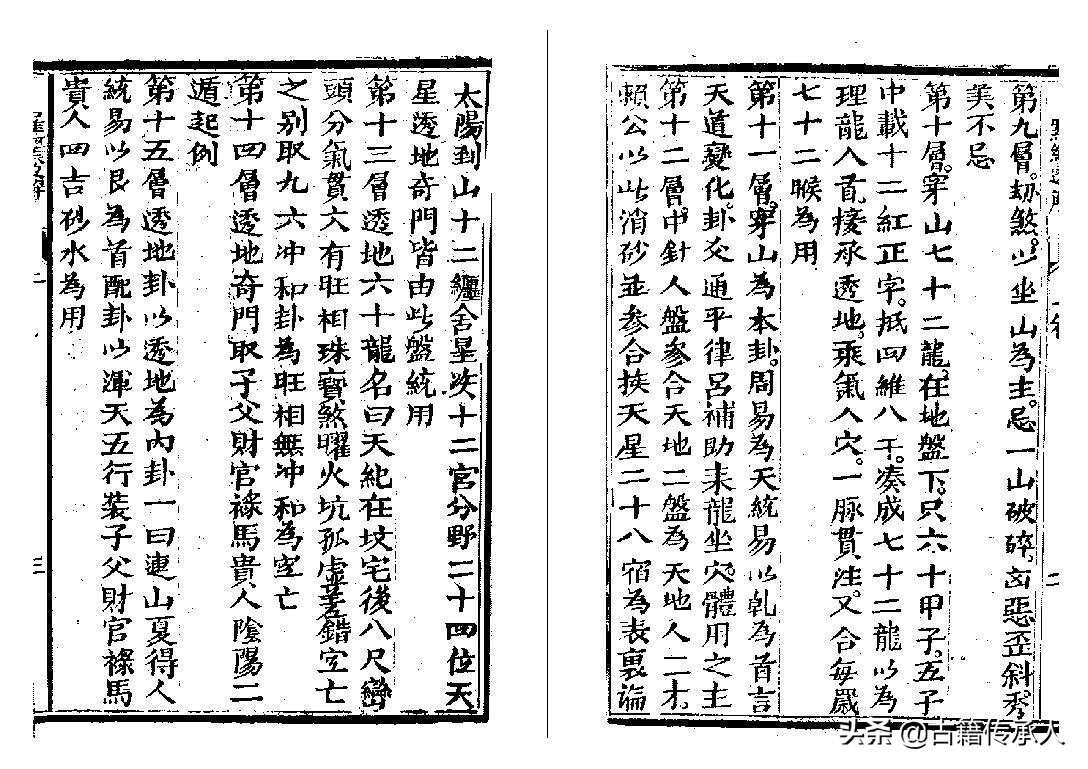 第九層。刼煞。以坐山為主。忌一山破碎。凶惡歪斜。秀
美不忌
第十層。穿山七十二龍。在地盤下。只六十甲子。五子
中載十二紅正字。抵四維八干。凑成七十二龍以為
理龍入首。接承透地。乘氣入穴。一脉貫注。又合每歲
七十二候為用
第十一層。穿山為本卦。周易為天統易以乾為首言
天道變化。卦爻通乎律呂補助來龍坐穴體用之主
第十二層。中針人盤參合天地二盤為天地人三才。
賴公以此消砂並参合挨天星二十八宿為表裏論
太陽到山十二纏舍星次十二宮分野二十四位天
星透地奇門皆由此盤統用
第十三層透地六十龍名曰天紀在坟宅後八尺巒
頭分氣貫穴有旺相珠寶煞曜火坑孤虛差錯空亡
之别取九六冲和卦為旺相無冲和為空亡
第十四層透地奇門取子父財官祿馬貴人陰陽二
遁起例
第十五層透地卦以透地為內卦一曰連山夏得人
統易以艮為首配卦以渾天五行装子父財官祿馬
貴人四吉砂水為用
三
头条 @古籍传承人